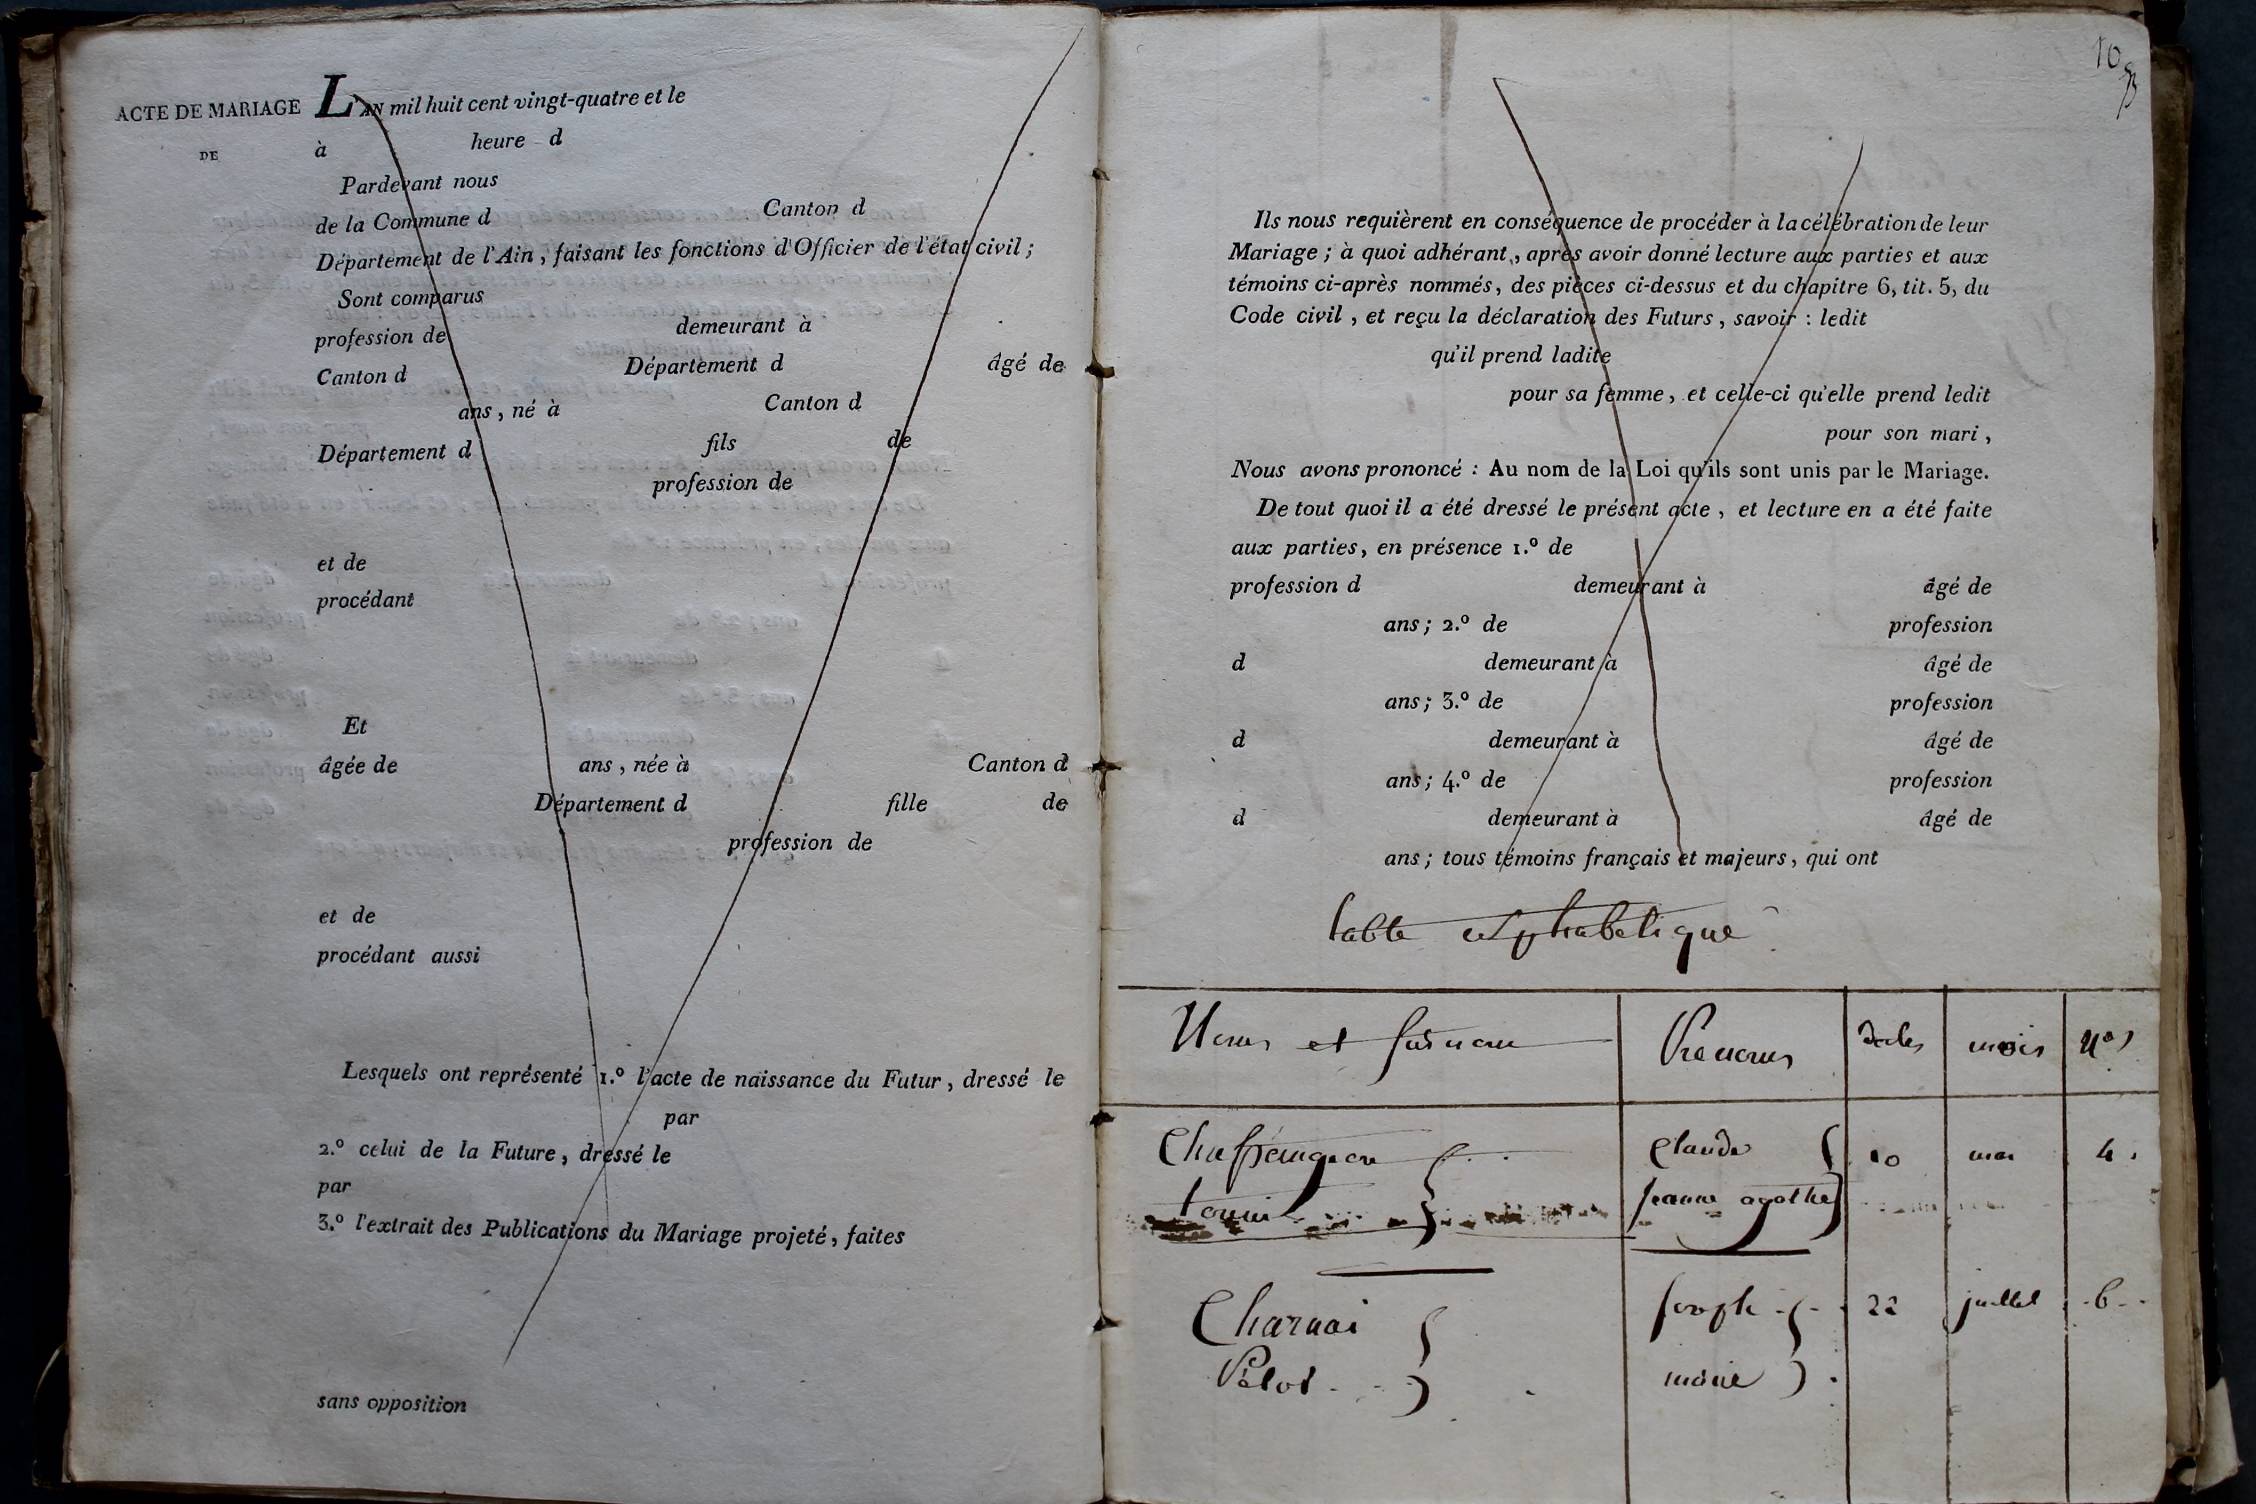 ACTE DE MARIAGE
DE
L'AN mil huit cent vingt-quatre et le
à heure d
Pardevant nous
de la Commune d Canton d
Département de l'Ain, faisant les fonctions d'Officier de l'état civil ;
Sont comparus
profession de demeurant à
Canton d Département d âgé de
ans, né à Canton d
Département d fils de
profession de
et de
procédant
Et
âgée de ans, née à Canton d
Département d fille de
profession de
et de
procédant aussi
Lesquels ont représenté 1.º l'acte de naissance du Futur, dressé le
par
2.º celui de la Future, dressé le
par
3.º l'extrait des Publications du Mariage projeté, faites
sans opposition
10
Ils nous requièrent en conséquence de procéder à la célébration de leur
Mariage ; à quoi adhérant, après avoir donné lecture aux parties et aux
témoins ci-après nommés, des pièces ci-dessus et du chapitre 6, tit. 5, du
Code civil, et reçu la déclaration des Futurs, savoir : ledit
qu'il prend ladite
pour sa femme, et celle-ci qu'elle prend ledit
pour son mari,
Nous avons prononcé : Au nom de la Loi qu'ils sont unis par le Mariage.
De tout quoi il a été dressé le présent acte, et lecture en a été faite
aux parties, en présence 1.º de
profession d demeurant à âgé de
ans ; 2.º de profession
d demeurant à âgé de
ans ; 3.º de profession
d demeurant à âgé de
ans ; 4.º de profession
d demeurant à âgé de
ans ; tous témoins français et majeurs, qui ont
table alphabetique
Noms et surnom Prenoms dates mois Nos
Claude 10 mai 4.
jeanne agathe
Charnai joseph 22 juillet 6
Pelot marie